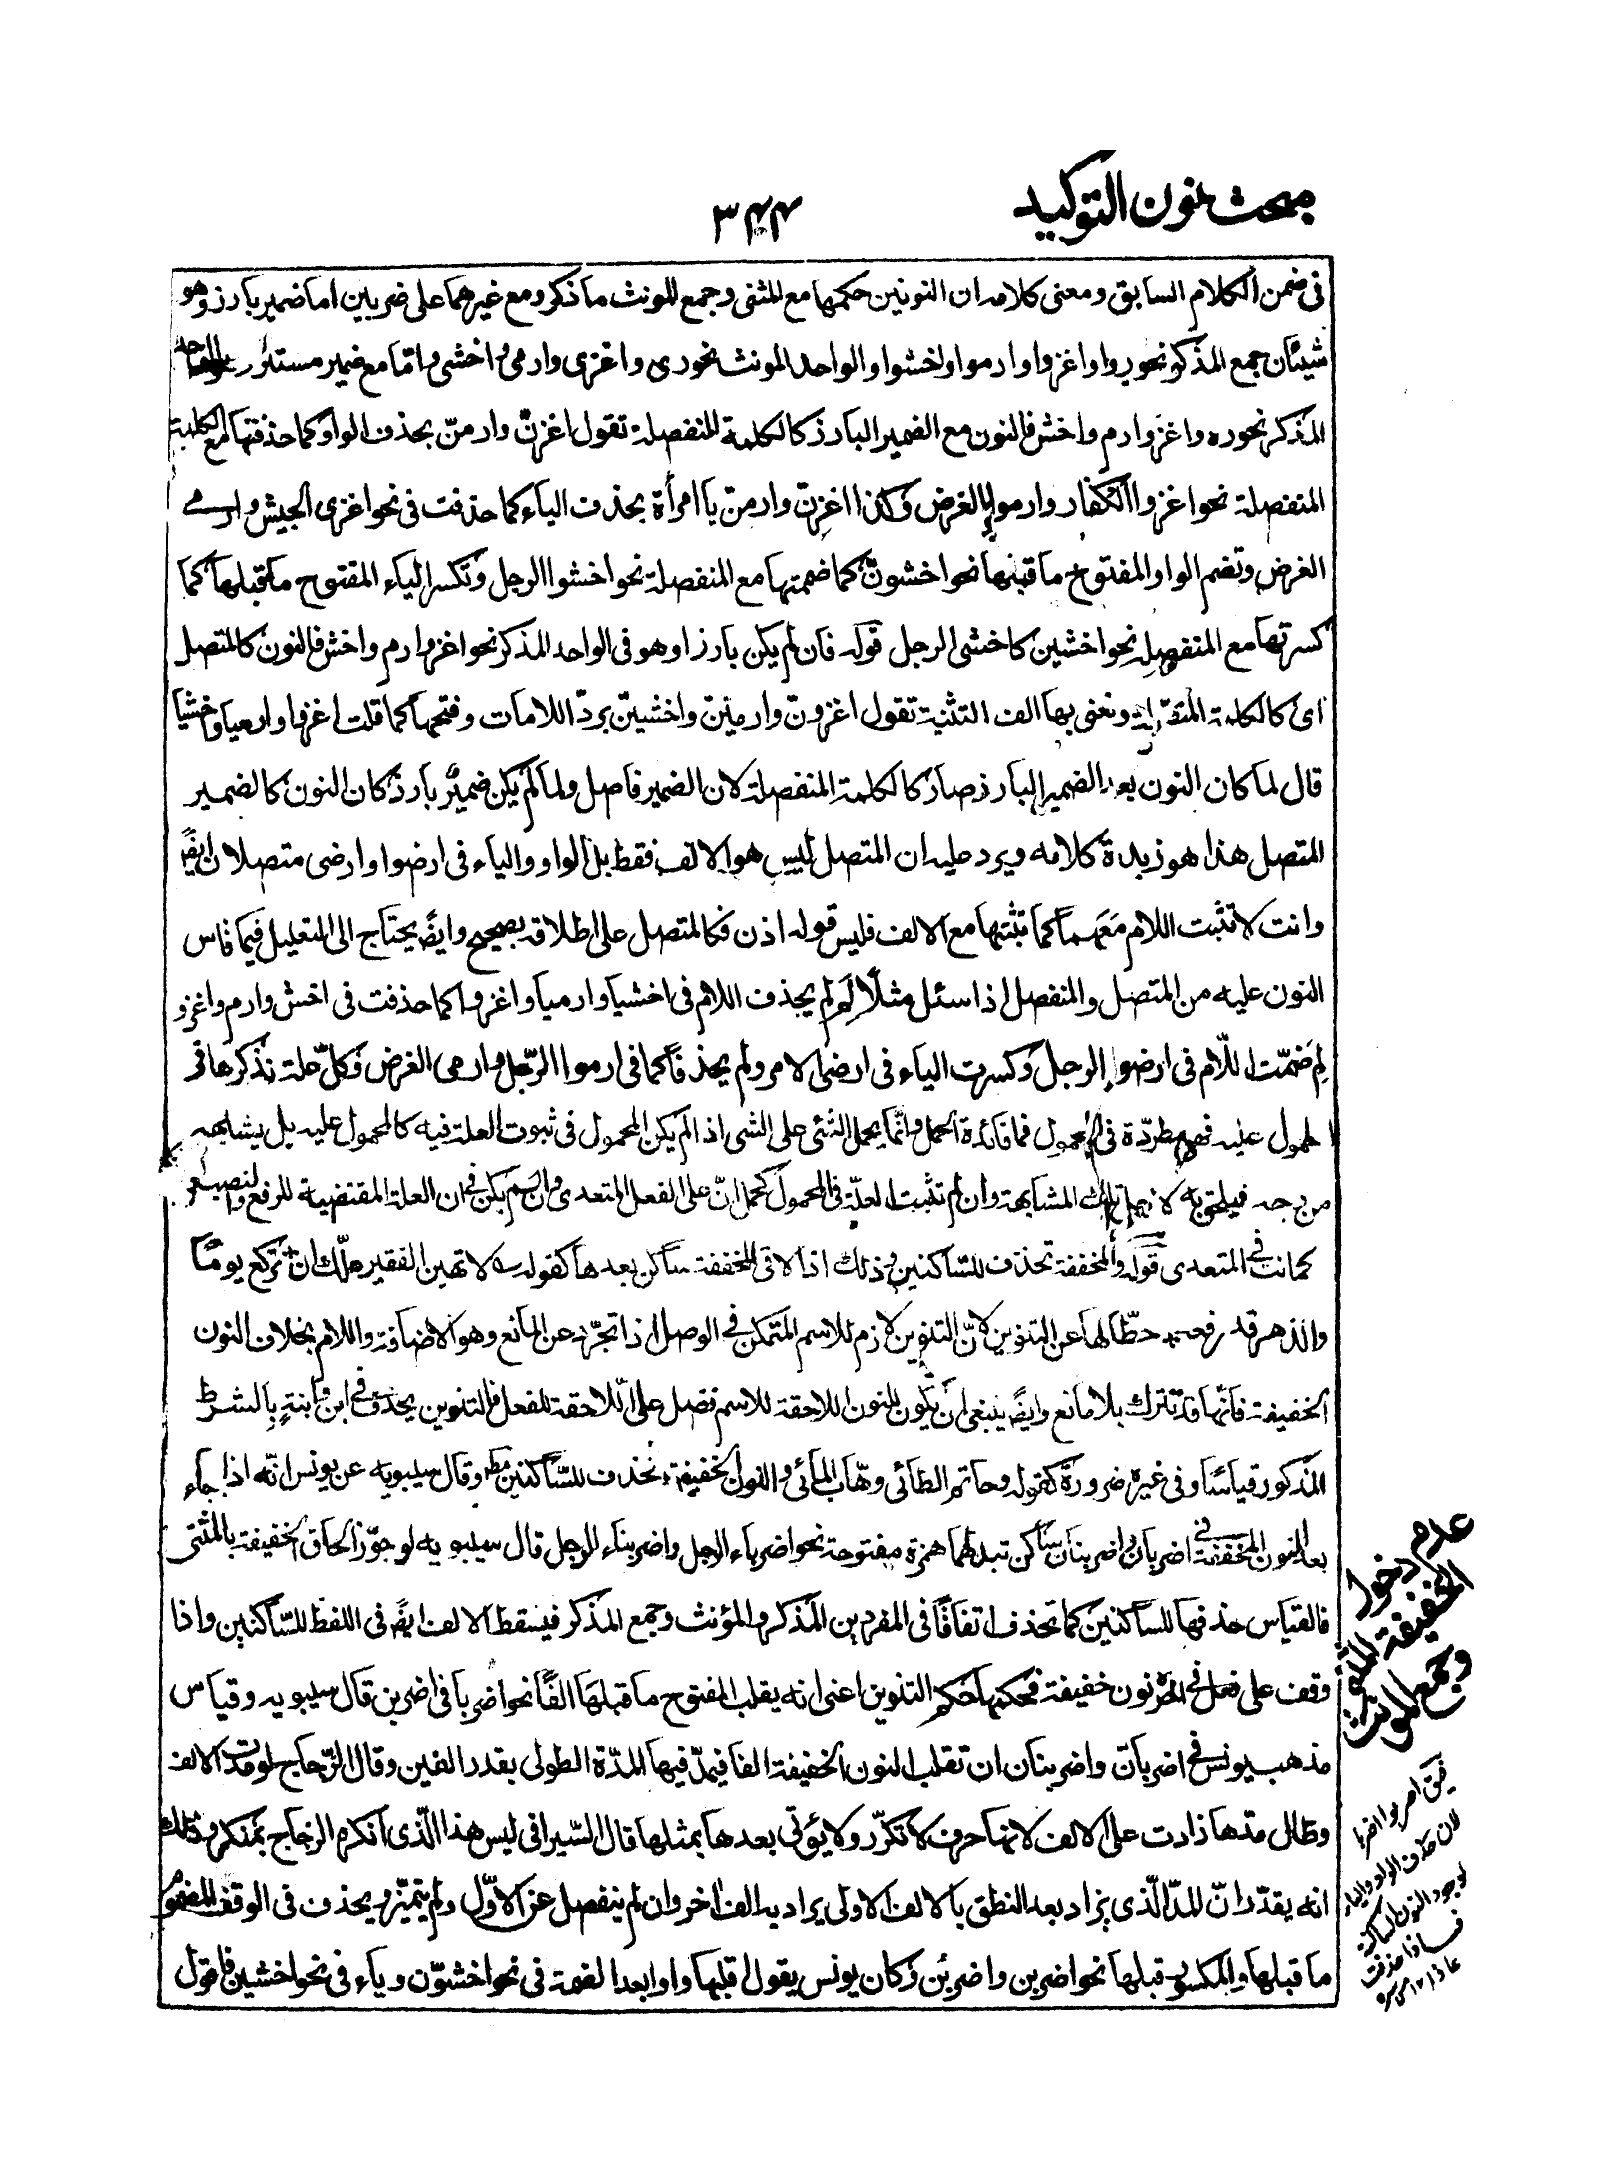 مبحث نون التوكيد
٣٤٤
فى ضمن الكلام السابق ومعنى كلامه ان النونين حكمهما مع المثنى وجمع المونث ما ذكر ومع غيرهما على ضربين اما ضمير بارز وهو
شيئان جمع المذكر نحو روا واغزوا وارموا واخشوا والواحد المونث نحو رى واغزى وارمى واخشى واما مع ضمير مستتر وهو الواحد
المذكر نحو ره واغز وارم واخش فالنون مع الضمير البارز كالكلمة المنفصلة تقول اغزنّ وارمنّ بحذف الواو كما حذفتها مع الكلمة
المنفصلة نحو اغزوا الكفار وارموا الغرض وكذا اغزنّ وارمنّ يا امرأة بحذف الياء كما حذفت فى نحو اغزى الجيش وارمى
الغرض وتضم الواو المفتوح ما قبلها نحو اخشونّ كما ضممتها مع المنفصلة نحو اخشوا الرجل وتكسر الياء المفتوح ما قبلها كما
كسرتها مع المنفصلة نحو اخشين كاخشى الرجل قوله فان لم يكن بارزا وهو فى الواحد المذكر نحو اغز وارم واخش فالنون كالمتصل
اى كالكلمة المتصلة ونعنى بها الف التثنية تقول اغزونّ وارمينّ واخشينّ بردّ اللامات وفتحها كما قلت اغزوا وارميا واخشيا
قال لما كان النون بعد الضمير البارز صار كالكلمة المنفصلة لان الضمير فاصل ولما لم يكن ضمير بارز كان النون كالضمير
المتصل هذا هو زبدة كلامه ويرد عليه ان المتصل ليس هو الالف فقط بل الواو والياء فى ارضوا وارضى متصلان ايضً
وانت لا تثبت اللام معهما كما تثبتها مع الالف فليس قوله اذن فكالمتصل على اطلاقه بصحيح وايضً يحتاج الى التعليل فيما قاس
النون عليه من المتصل والمنفصل اذا سئل مثلًا لم لم يحذف اللام فى اخشيا وارميا واغزوا كما حذفت فى اخش وارم واغز و
لم ضمّت اللّام فى ارضوا الرجل وكسرت الياء فى ارضى الامر ولم يحذفا كما فى ارموا الرّجل وارمى الغرض وكلّ علة تذكرها فى
المحمول عليه فهى مطردّة فى المحمول فما فائدة الحمل وانّما يحمل الشئ على الشئ اذا لم يكن المحمول فى ثبوت العلة فيه كالمحمول عليه بل يشابهه
من وجه فيلحق به لاجل تلك المشابهة وان لم تثبت العلّة فى المحمول كحمل انّ على الفعل المتعدى وان لم يكن فى ان العلة المقتضية للرفع والنصب
كما كانت فى المتعدى قوله والمخففة تحذف للسّاكنين وذلك اذا لاقى المخففة ساكن بعدها كقوله لا تهين الفقير علّك ان تركع يومًا
والدهر قد رفعه حطّا لها عن التنوين لانّ التنوين لازم للاسم المتمكن فى الوصل اذا تجرّد عن المانع وهو الاضافة واللام بخلاف النون
الخفيفة فانّها قد تترك بلا مانع وايضً ينبغى ان يكون للنون اللاحقة للاسم فضل على اللّاحقة للفعل فالتنوين يحذف فى ابن وابنةٍ بالشرط
المذكور قياسًا وفى غيره ضرورةً كقوله وحاتم الطائى وهّاب المائى والنون الخفيفة تحذف للسّاكنين مط وقال سيبويه عن يونس انّه اذا جاء
بعد النون المخففة فى اضربان واضربنان ساكن تبدلها همزة مفتوحة نحو اضرباء الرجل واضربناء الرجل قال سيبويه لو جوّز الحاق الخفيفة بالمثنى
فالقياس حذفها للساكنين كما تحذف اتفاقًا فى المفردين المذكر والمؤنث وجمع المذكر فيسقط الالف ايضً فى اللفظ للسّاكنين واذا
وقف على فعل فى اخره نون خفيفة فحكمها حكم التنوين اعنى انه يقلب المفتوح ما قبلها الفًا نحو اضربا فى اضربن قال سيبويه وقياس
مذهب يونس فى اضربانّ واضربنان ان تقلب النون الخفيفة الفا فيمدّ فيها المدّة الطولى بقدر الفين وقال الزّجاج لو مدت الالف
وطال مدّها زادت على الالف لانها حرف لا تكرّر ولا يؤتى بعدها بمثلها قال السّيرافى ليس هذا الّذى انكره الزجاج بمنكر وذلك
انه يقدّر انّ المدّ الّذى يزاد بعد النطق بالالف الاولى يراد به الف اخر وان لم ينفصل عن الاوّل ولم يتميّز ويحذف فى الوقف المضموم
ما قبلها والمكسور قبلها نحو اضربن واضربن وكان يونس يقول اقلبها واوا بعد الضمة فى نحو اخشوّن وياء فى نحو اخشين فاقول
عدم دخول
الخفيفة المثنى
وجمع المونث
لان حذف الواو والياء
لوجود النون الساكنة
فاذا حذفت